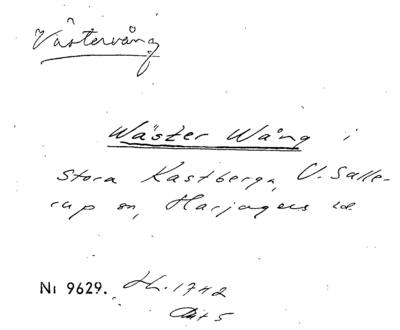 Västervång
Wäster Wång i
Stora Kastberga, V. Salle-
rup sn, Harjagers hd.
Nr 9629. Hh. 1742
Akt 5